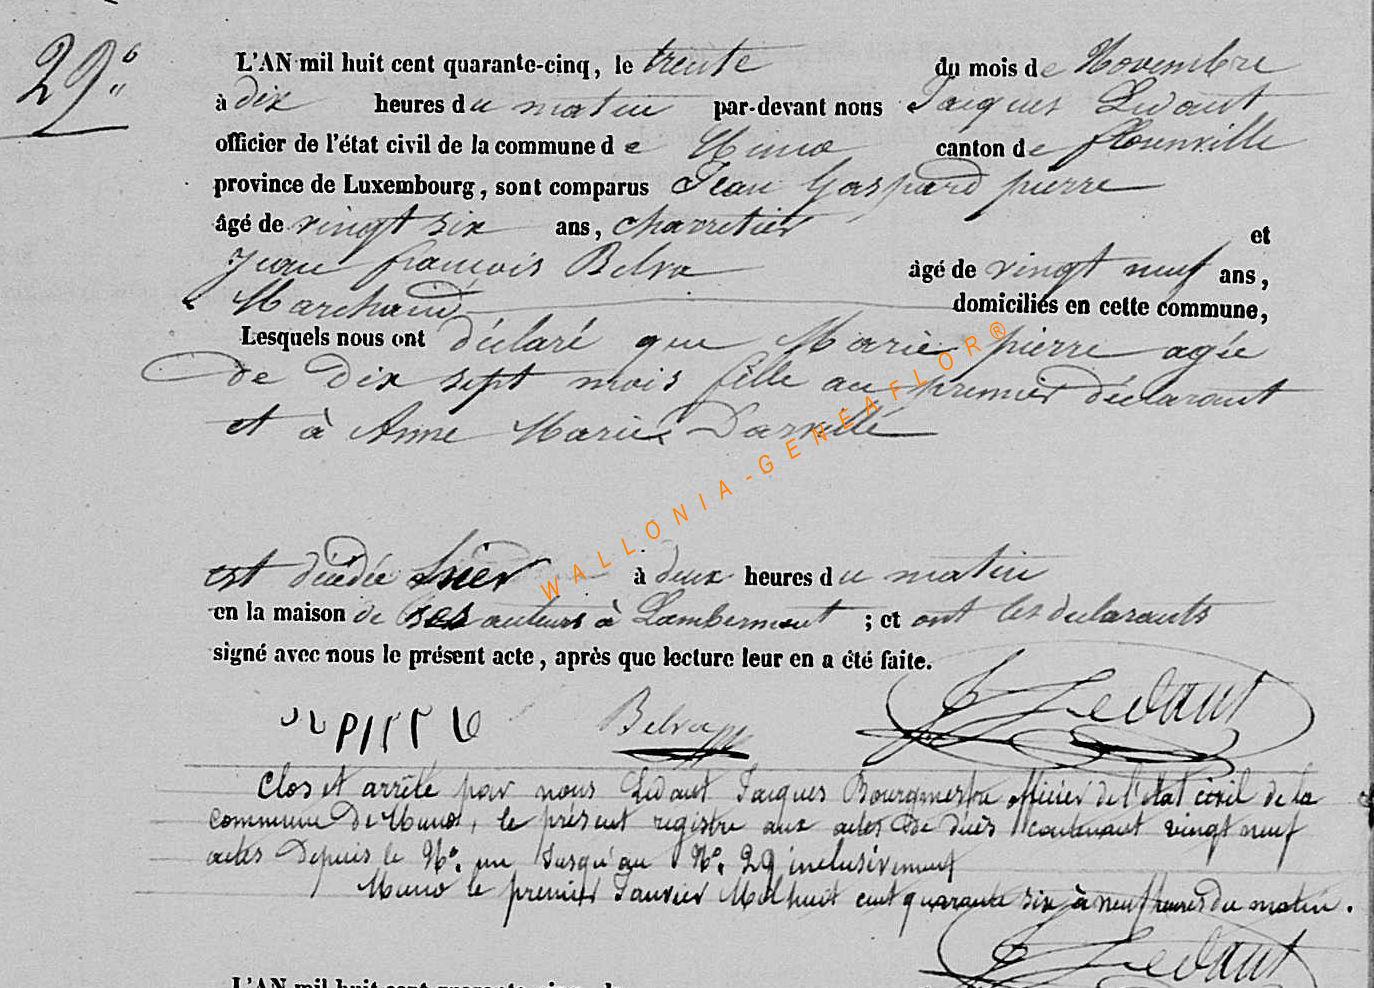 29.e
L'AN mil huit cent quarante-cinq, le trente du mois de Novembre
à dix heures du matin par-devant nous Jacques Ledant
officier de l'état civil de la commune de Muno canton de florenville
province de Luxembourg, sont comparus Jean Gaspard pierre
âgé de vingt six ans, charretier et
Jean françois Belva âgé de vingt neuf ans,
Marchand domiciliés en cette commune,
Lesquels nous ont déclaré que Marie pierre agée
de dix sept mois fille au premier déclarant
et à Anne Marie
WALLONIA-GENEAFLOR®
est décédée hier à deux heures du matin
en la maison de ses auteurs à Lambermont ; et ont les declarants
signé avec nous le présent acte, après que lecture leur en a été faite.
Belva J Ledant
Clos et arrêté par nous Ledant Jacques Bourgmestre officier de l'état civil de la
commune de Muno, le présent registre aux actes de décès contenant vingt neuf
actes depuis le N°. un Jusqu'au N°. 29 inclusivement
Muno le premier Janvier Mil huit cent quarante six à neuf heures du matin.
J Ledant